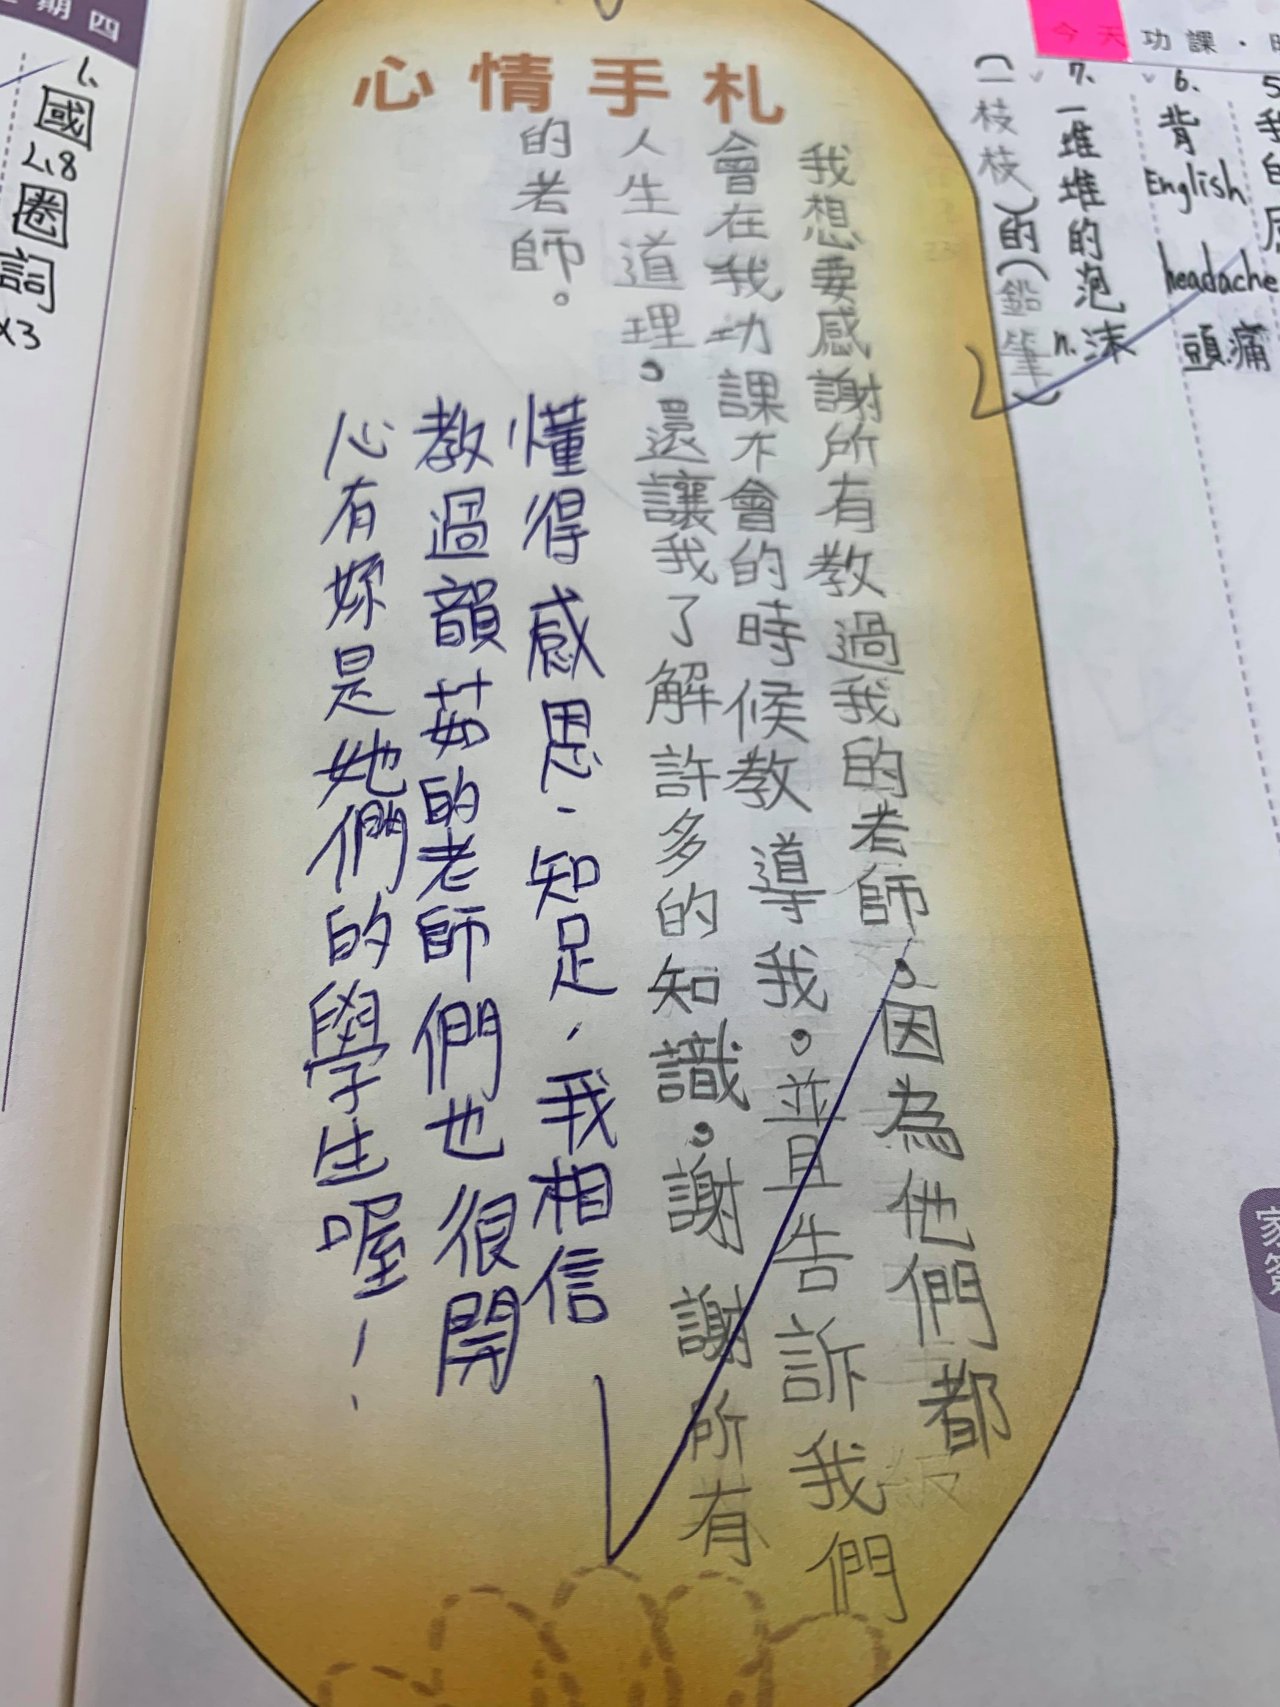 心情手札
我想要感謝所有教過我的老師。因為他們都
會在我功課不會的時候教導我。並且告訴我們
人生道理。還讓我了解許多的知識。謝謝所有
的老師。
懂得感恩、知足，我相信
教過韻茹的老師們也很開
心有妳是她們的學生喔！
今天功課・
我的
6. 背English headache 頭痛
7. 一堆堆的泡沫
(一枝枝)的(鉛筆)
期四
1. 國
2.8 圈詞
x3
家簽